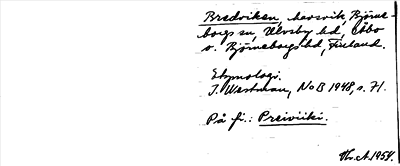 Bredviken, havsvik, Björne-
borgs sn, Ulvsby hd, Åbo
o. Björneborgs hd, Finland.
Etymologi.
I. Westman, NoB 1948, s. 71.
På fi.: Preiviiki.
1954.